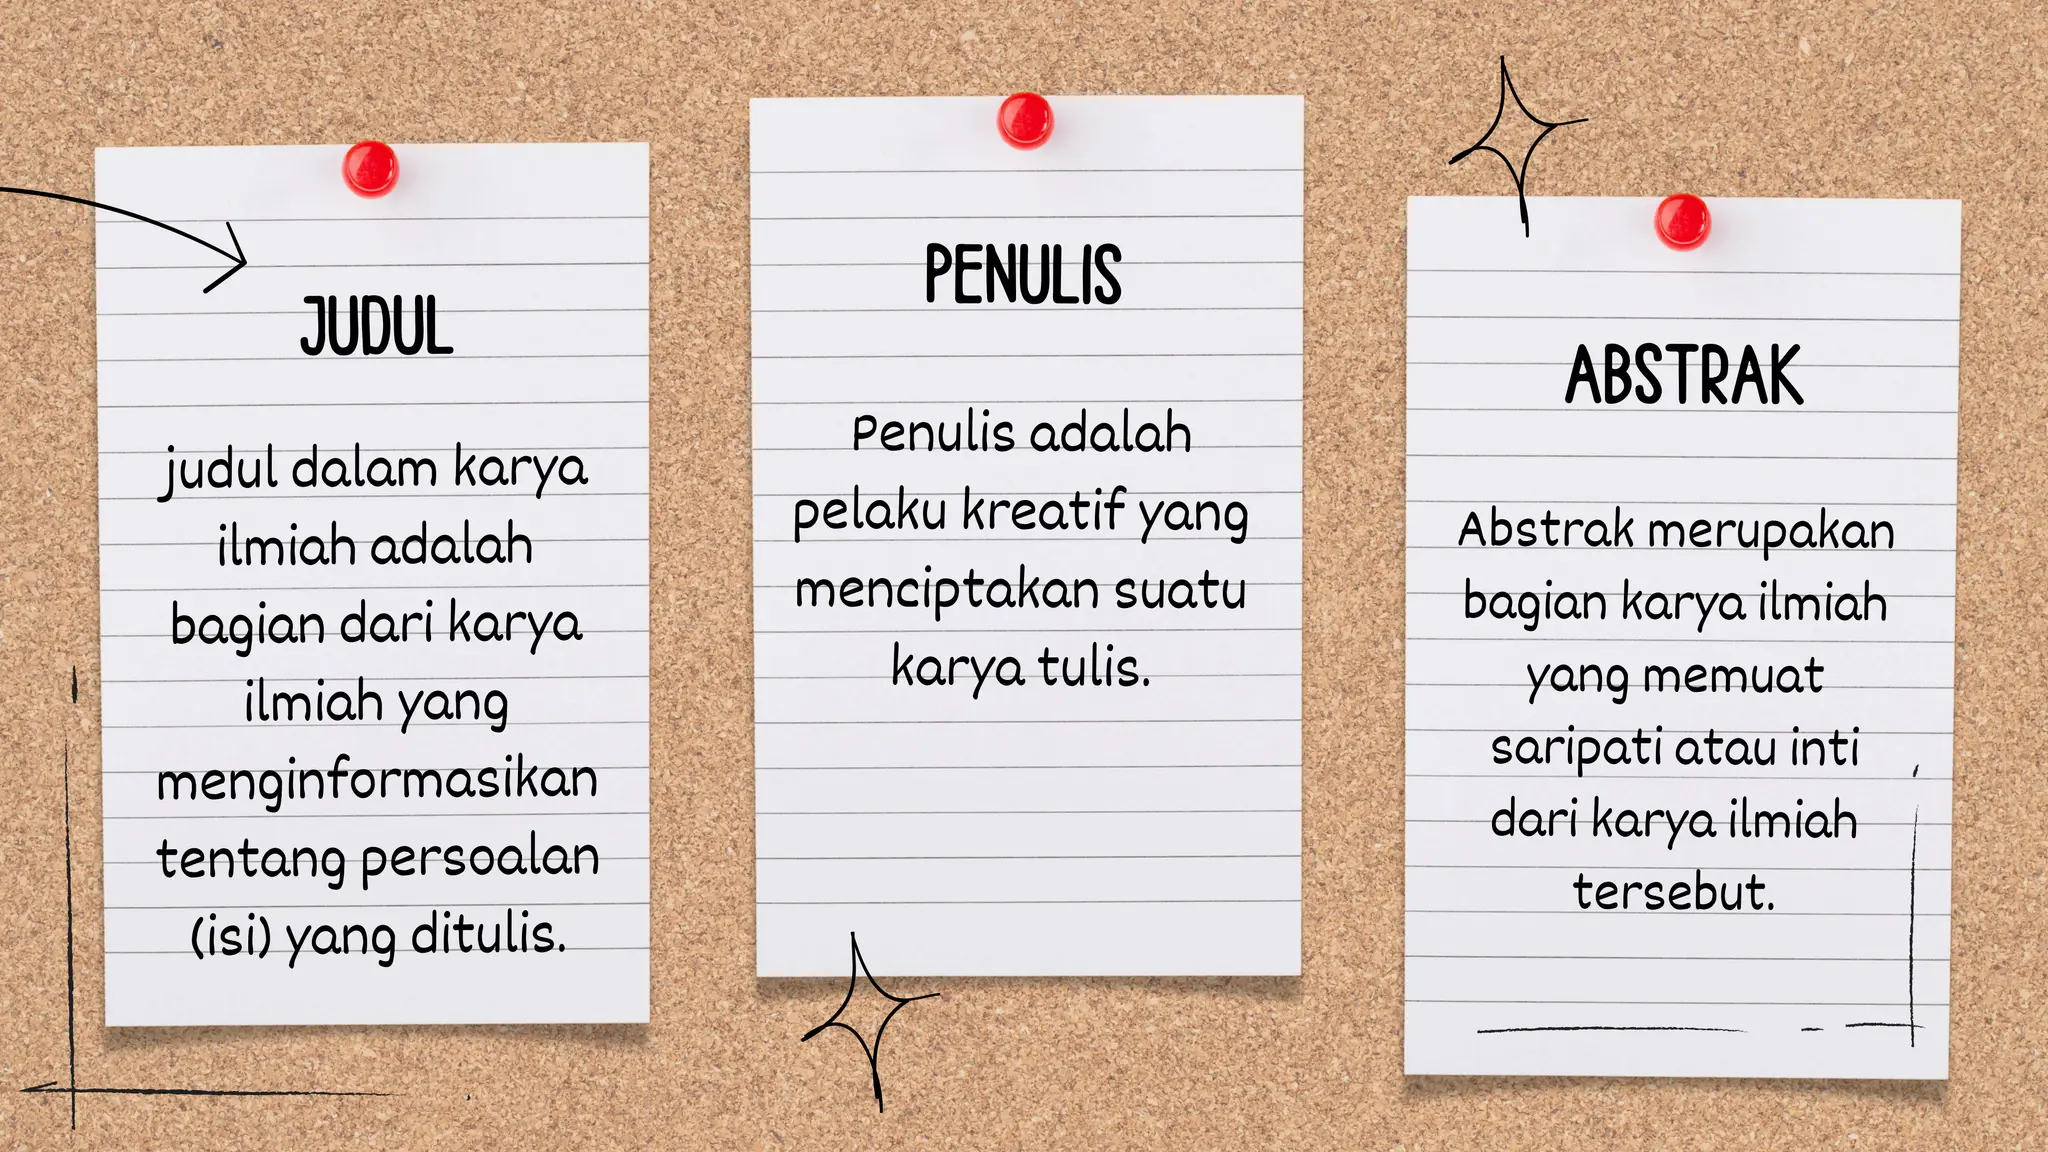 JUDUL
judul dalam karya
ilmiah adalah
bagian dari karya
ilmiah yang
menginformasikan
tentang persoalan
(isi) yang ditulis.
PENULIS
Penulis adalah
pelaku kreatif yang
menciptakan suatu
karya tulis.
ABSTRAK
Abstrak merupakan
bagian karya ilmiah
yang memuat
saripati atau inti
dari karya ilmiah
tersebut.